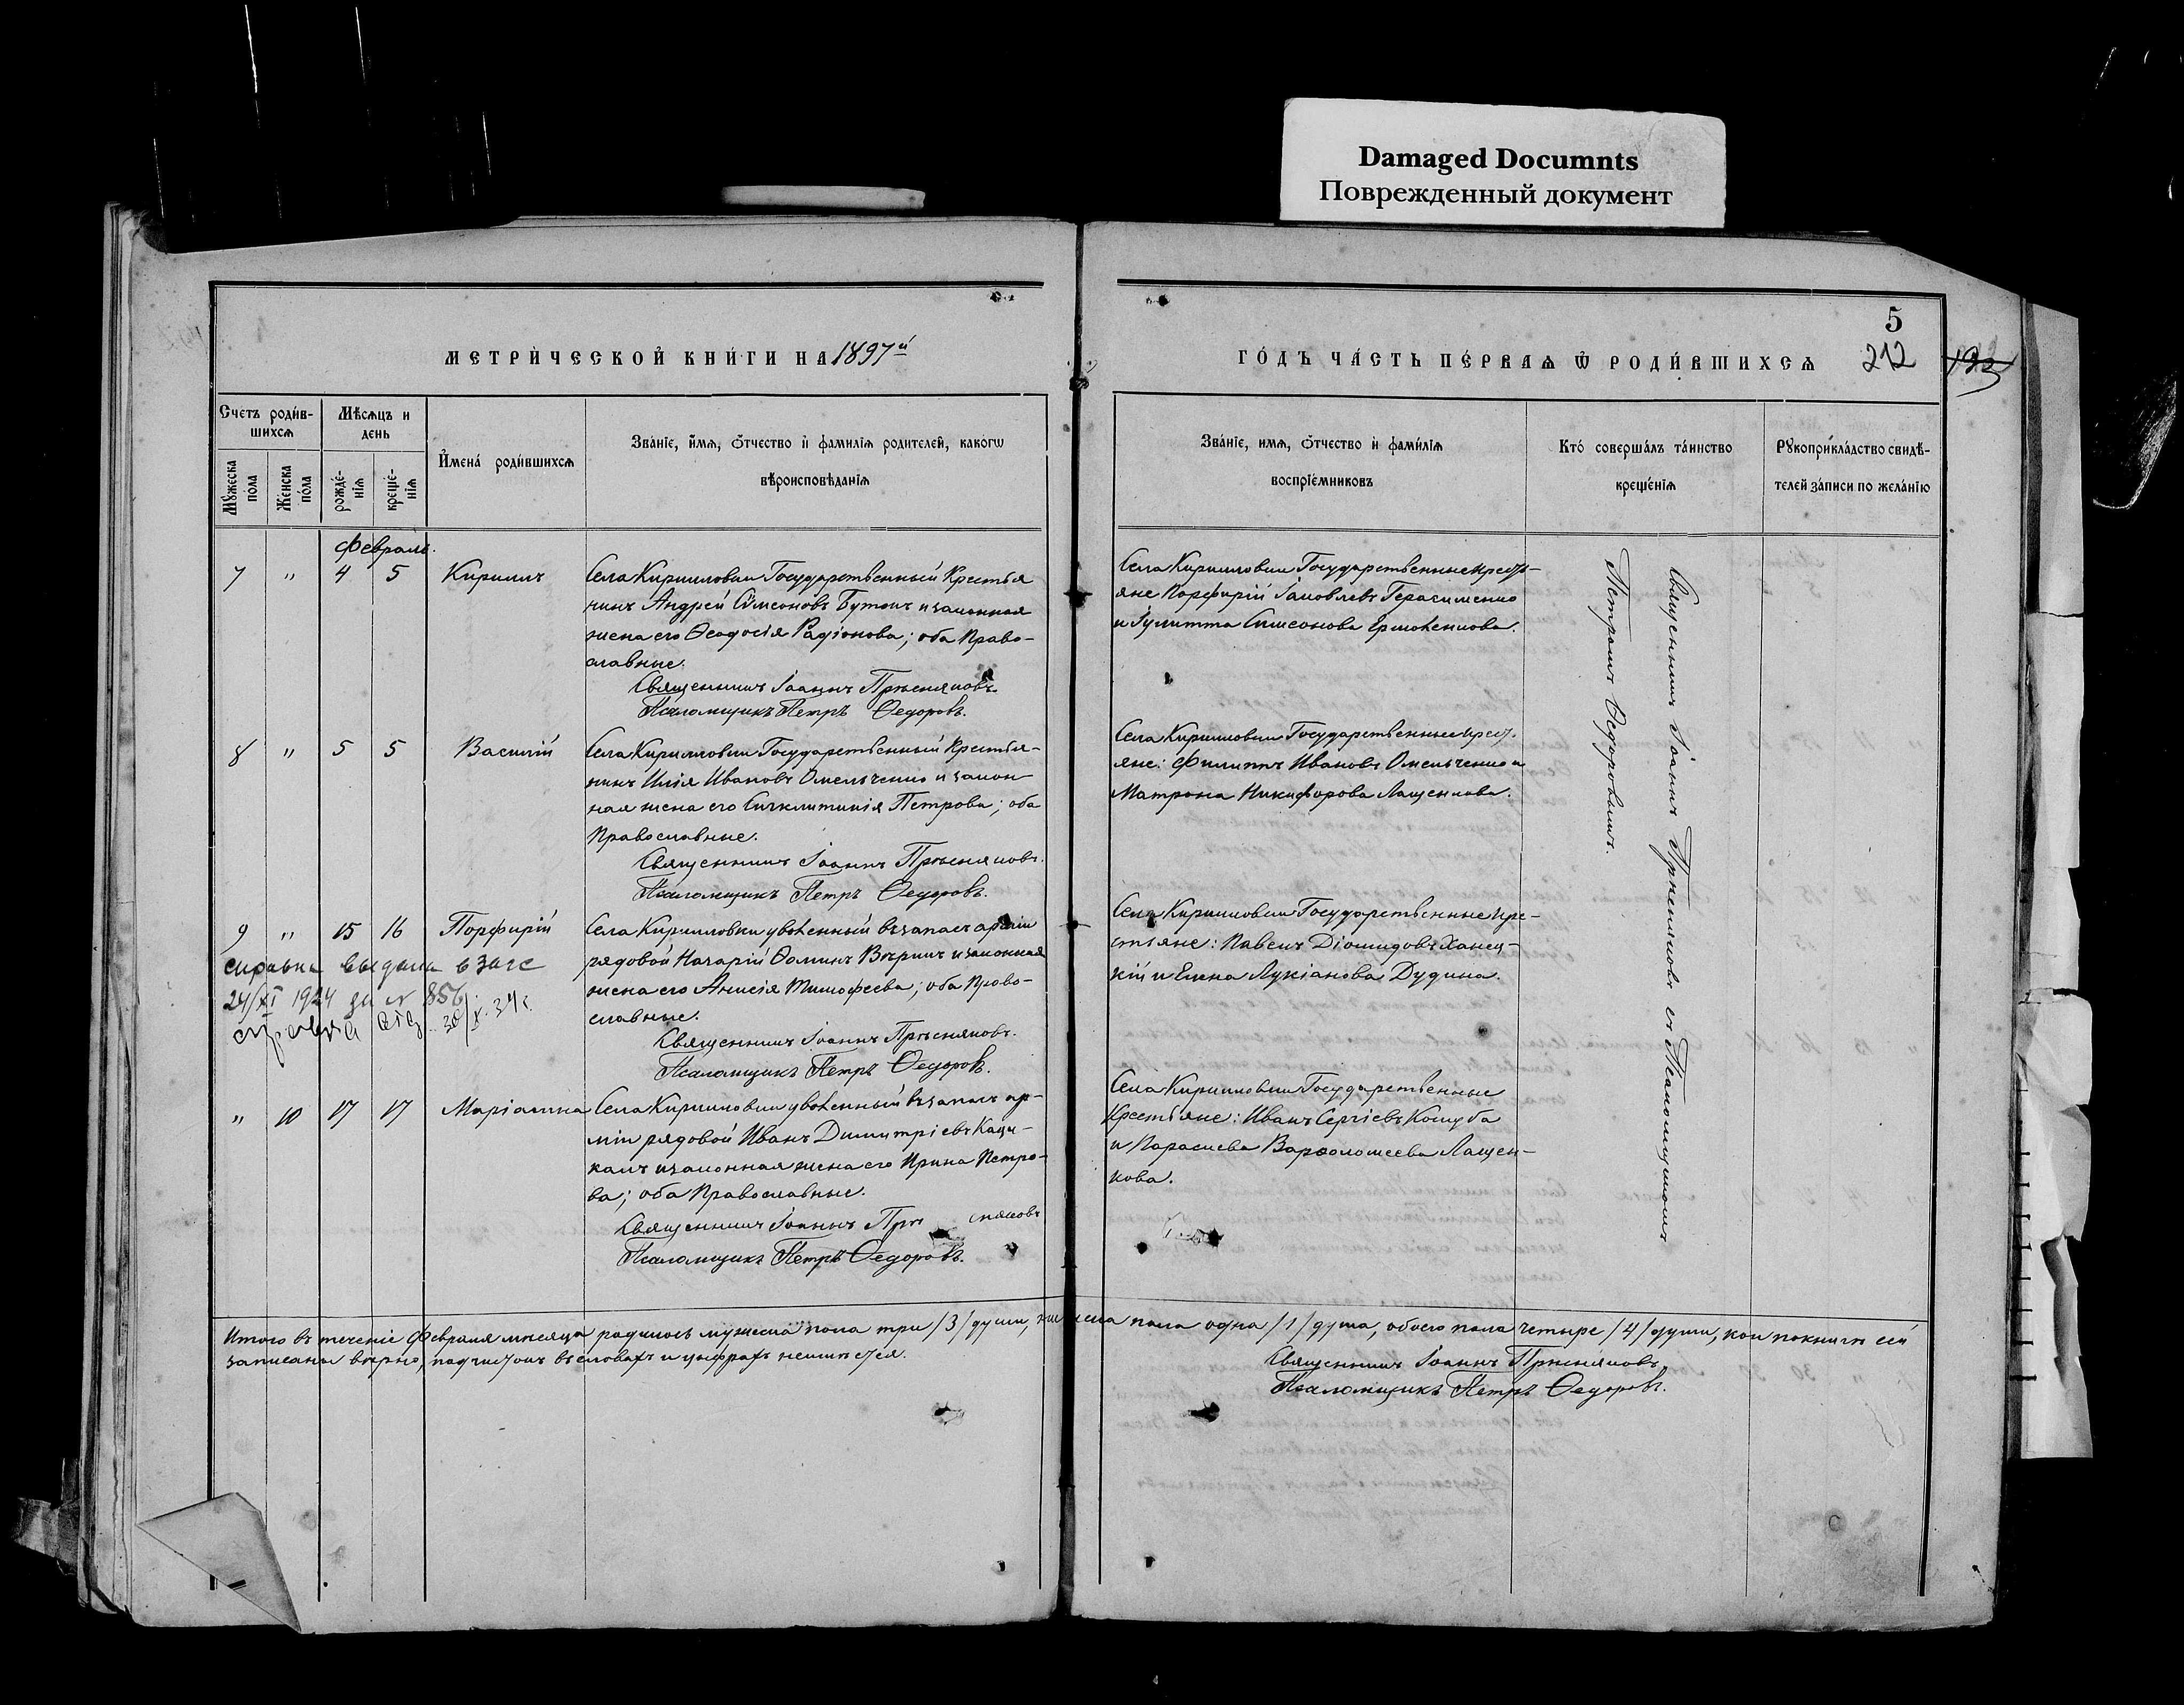 Damaged Documnts
Поврежденный документ
5
МЕТРИ́ЧЕСКОЙ КНИ́ГИ НА 1897й
ГО́ДЪ ЧА́СТЬ ПЕ́РВАѦ Ѿ РОДИ́ВШИХСѦ
212
Счетъ роди́в-
шихсѧ
Мѣ́сѧцъ и
день
И҆мена́ роди́вшихсѧ
Зва́нїе, и҆́мѧ, ѻ҆́тчество и҆ фами́лїѧ роди́телей, како́гѡ
вѣроисповѣ́данїѧ
Мꙋ́жеска
по́ла
Же́нска
по́ла
рожде́-
нїѧ
креще́-
нїѧ
Зва́нїе, имѧ, ѻ҆́тчество и҆ фами́лїѧ
воспрїе́мниковъ
Кто́ соверша́лъ та́инство
креще́нїѧ
Рꙋкоприкла́дство свидѣ́-
телей за́писи по жела́нїю
Февраль.
7 " 4 5 Кириллъ
Села Кирилловки Государственный Крестья
нинъ Андрей Сѵмеоновъ Бутокъ и законная
жена его Ѳеодосія Радіонова; оба Право-
славные.
Священникъ Іоаннъ Прѣсняковъ.
Псаломщикъ Петръ Ѳедоровъ.
Села Кирилловки Государственные крест-
яне Порфирій Іаковлевъ Герасименко
и Іулитта Симеонова Ермоленкова.
8 " 5 5 Василій
Села Кирилловки Государственный Крестья-
нинъ Илія Ивановъ Омельченко и закон-
ная жена его Сѵнклитикія Петрова; оба
Православные.
Священникъ Іоаннъ Прѣсняковъ.
Псаломщикъ Петръ Ѳедоровъ.
Села Кирилловки Государственные крест.
яне: Филиппъ Ивановъ Омельченко и
Матрона Никифорова Лащенкова.
9 " 15 16 Порфирій
Села Кирилловки уволенный въ запасъ арміи
рядовой Назарій Ѳоминъ и законная
жена его Анисія Тимофеева; оба Право-
славные.
Священникъ Іоаннъ Прѣсняковъ.
Псаломщикъ Петръ Ѳедоровъ.
справка выдана в загс
24/XI 1924 за № 856
справка
Села Кирилловки Государственные кре-
стьяне: Павелъ Діомидовъ Ханец-
кій и Елена Лукіанова Дудина.
" 10 17 17 Маріамна
Села Кирилловки уволенный въ запасъ ар-
міи рядовой Иванъ Димитріевъ Каци-
камъ и законная жена его Ирина Петро-
ва; оба Православные.
Священникъ Іоаннъ Прѣсняковъ
Псаломщикъ Петръ Ѳедоровъ.
Села Кирилловки Государственные
Крестьяне: Иванъ Сергіевъ Кошуба
и Параскева Варѳоломеева Лащен-
кова.
Священникъ Іоаннъ Прѣсняковъ съ Псаломщикомъ
Петромъ Ѳедоровымъ.
Итого въ теченіе Февраля мѣсяца родилось мужеска пола три /3/ души, женска пола одна /1/ душа, обоего пола четыре /4/ души, кои по книгѣ сей
записаны вѣрно, подчистокъ въ словахъ и цыфрахъ не имѣется.
Священникъ Іоаннъ Прѣсняковъ.
Псаломщикъ Петръ Ѳедоровъ.